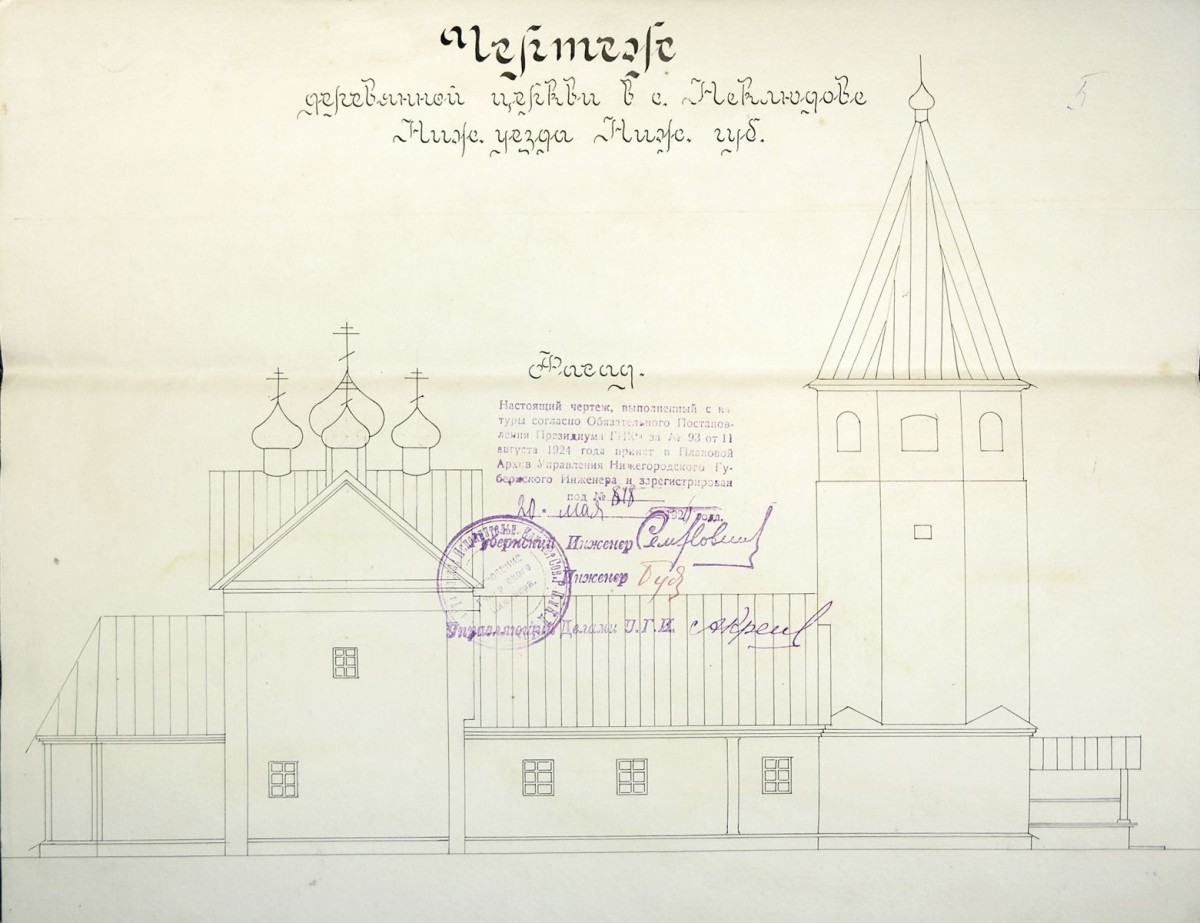 Чертеж
деревянной церкви в с. Неклюдове
Ниж. уезда Ниж. губ.
5
Фасад.
Настоящий чертеж, выполненный с на-
туры согласно Обязательного Постанов-
ления Президиума ГИК'а за № 93 от 11
августа 1924 года принят в Плановой
Архив Управления Нижегородского Гу-
бернского Инженера и зарегистрирован
под № 818
20 · мая года.
Губернский Инженер
Инженер
Управляющий Делами У.Г.И.